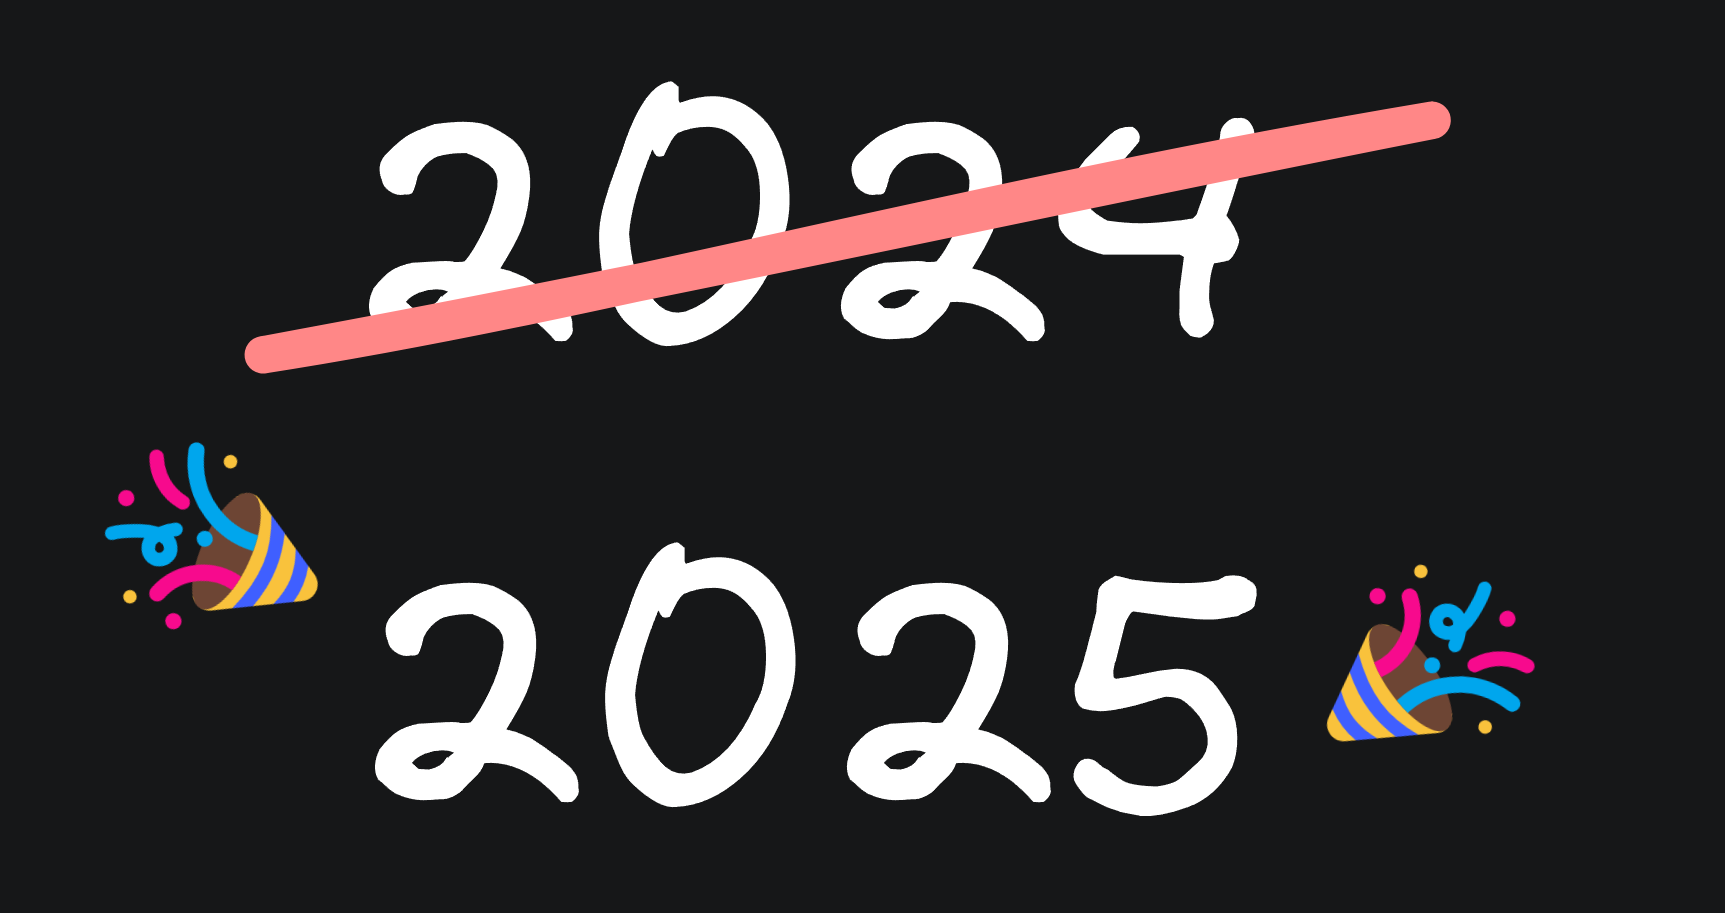 2024
2025